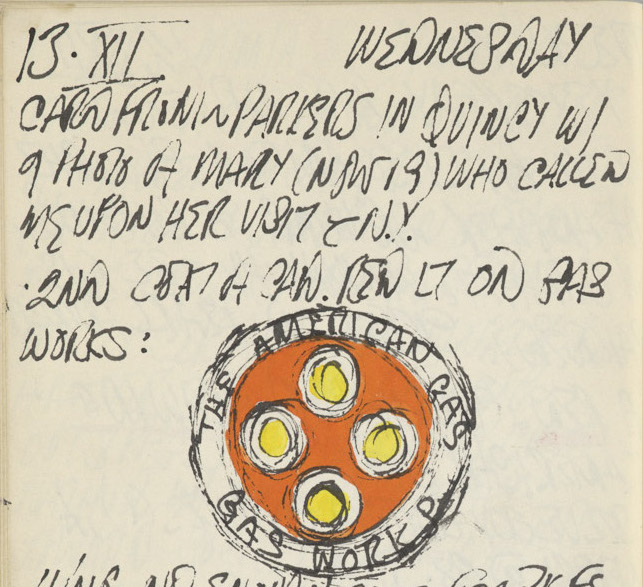 13 · XII WEDNESDAY
CARD FROM PARKERS IN QUINCY W/
A PHOTO OF MARY (NOW 19) WHO CALLED
ME UPON HER VISIT N.Y.
· 2ND COAT OF CAD. RED LT ON GAS
WORKS:
THE AMERICAN GAS
GAS WORKS